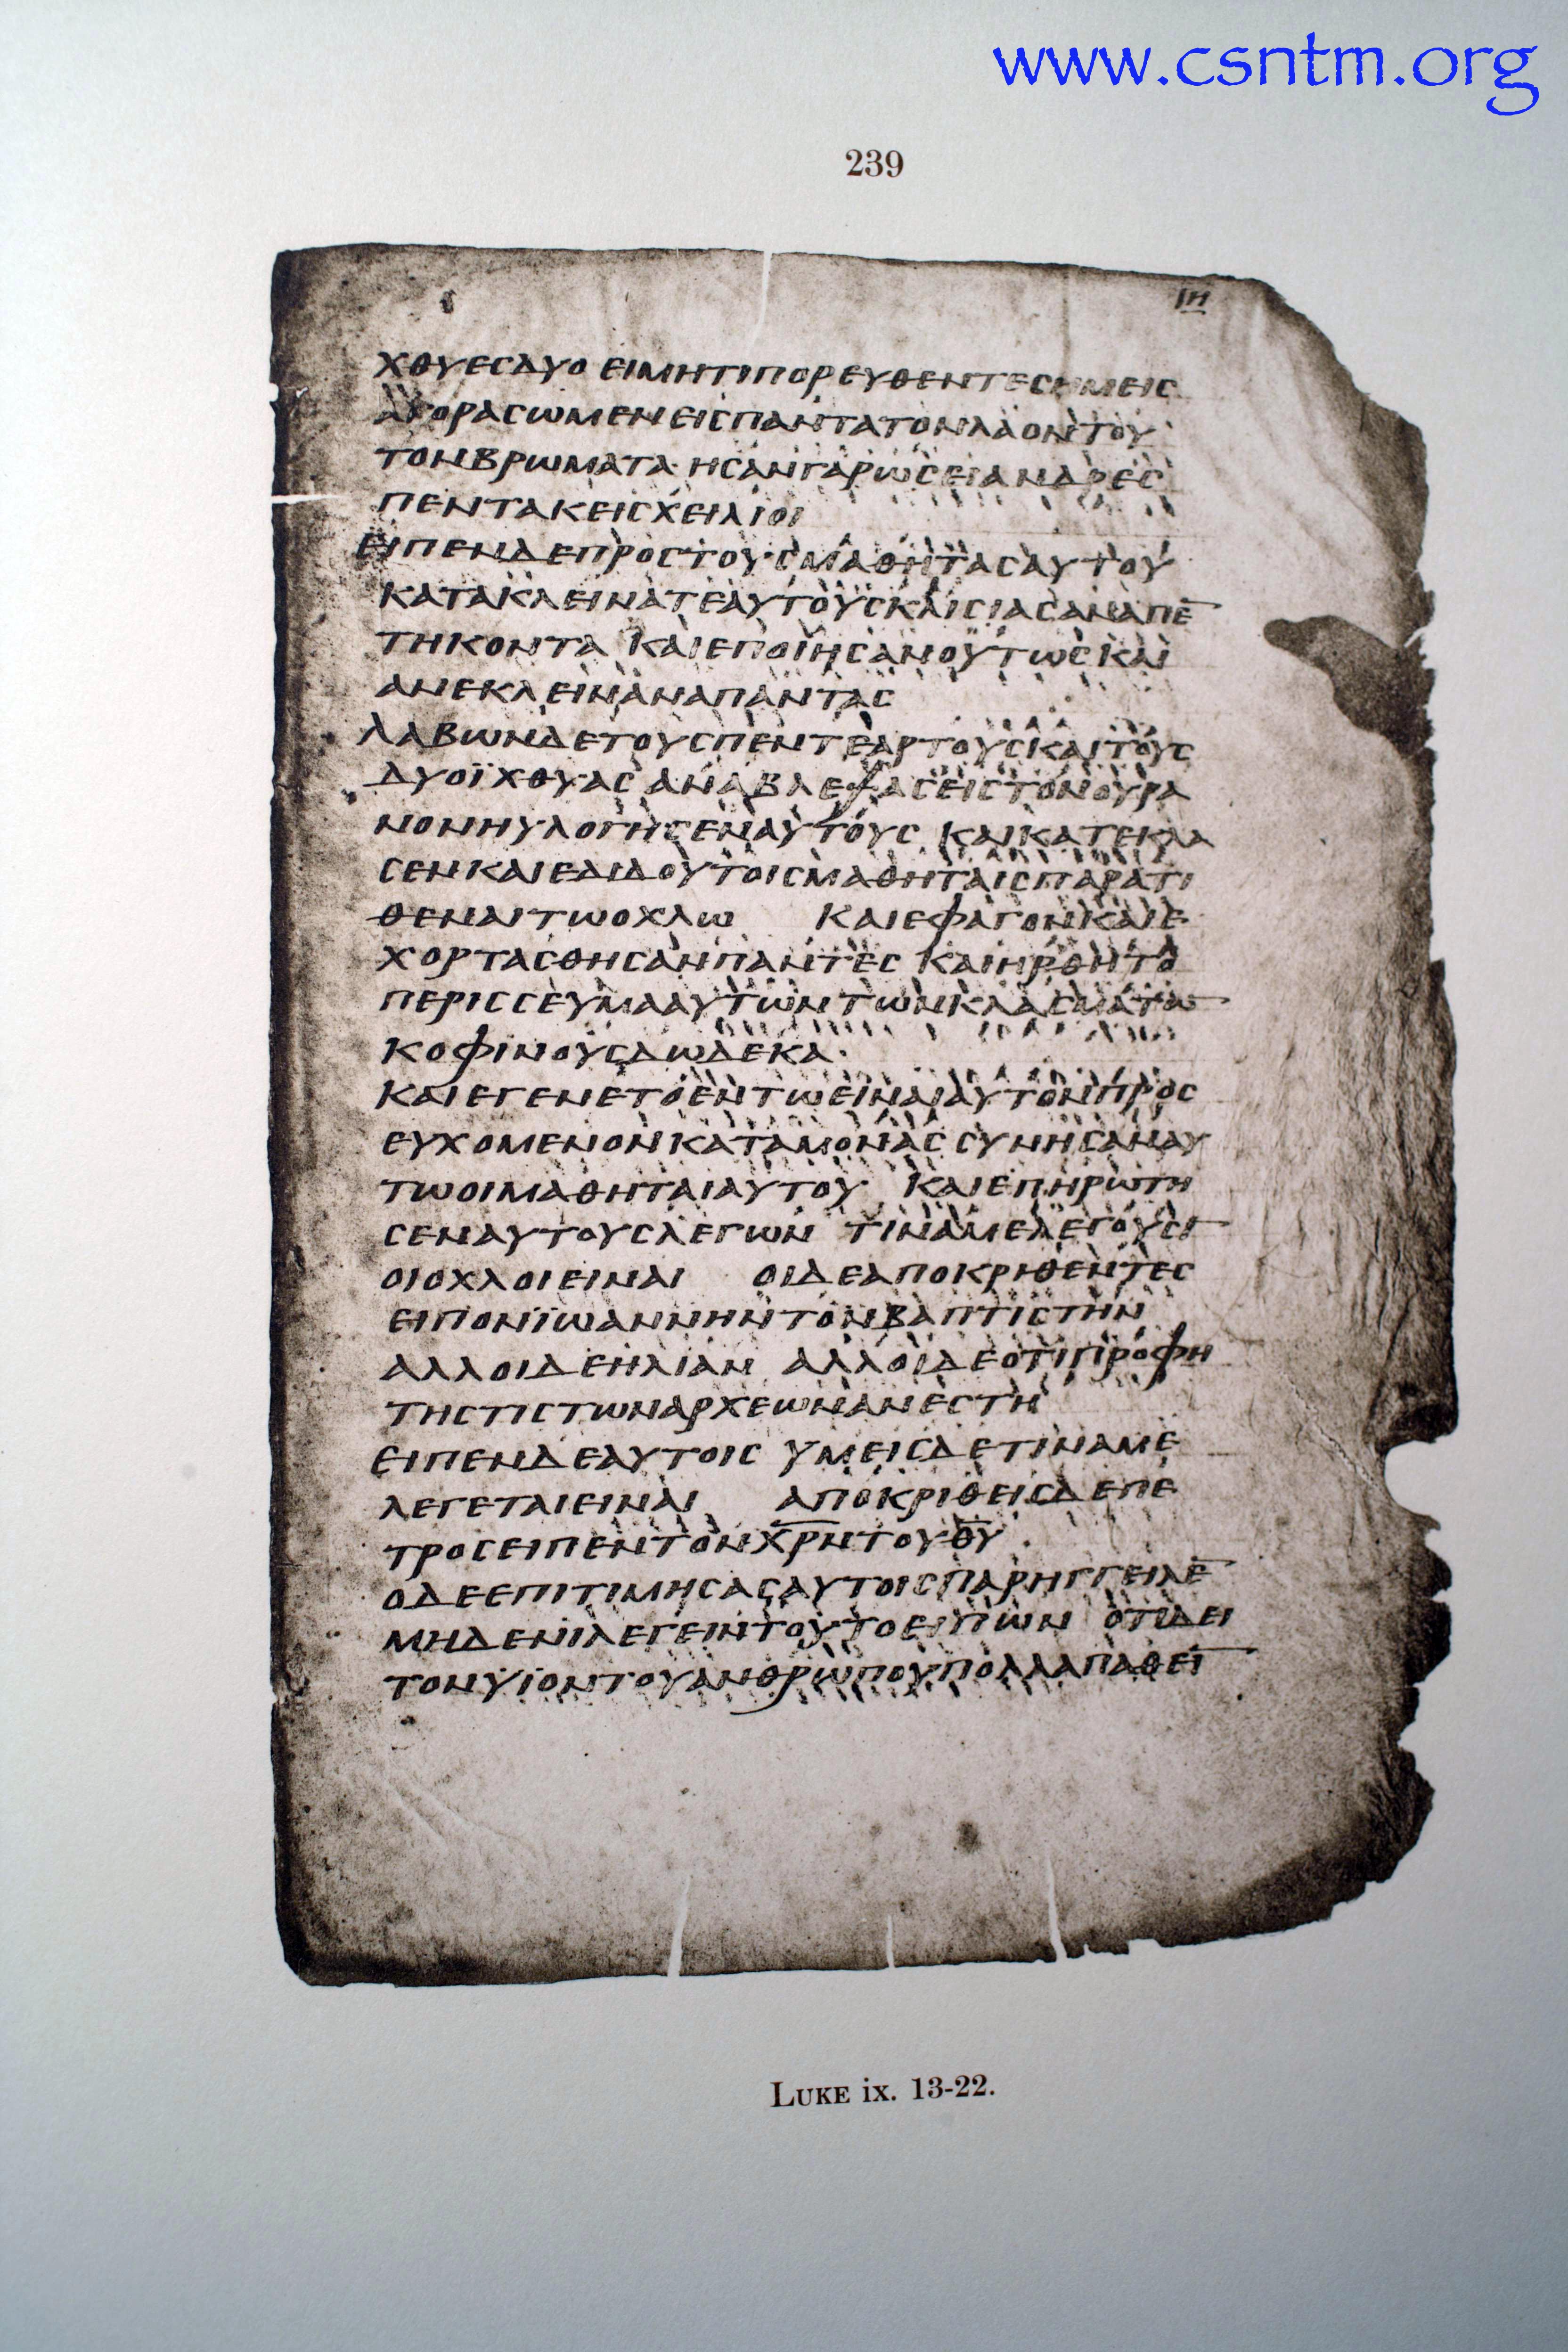 www.csntm.org
239
ΙΗ
ΧΘΥΕCΔΥΟ ΕΙΜΗΤΙΠΟΡΕΥΘΕΝΤΕCΗΜΕΙC
ΑΓΟΡΑCΩΜΕΝΕΙCΠΑΝΤΑΤΟΝΛΑΟΝΤΟΥ
ΤΟΝΒΡΩΜΑΤΑ·ΗCΑΝΓΑΡΩCΕΙΑΝΔΡΕC
ΠΕΝΤΑΚΕΙCΧΕΙΛΙΟΙ
ΕΙΠΕΝΔΕΠΡΟCΤΟΥCΜΑΘΗΤΑCΑΥΤΟΥ
ΚΑΤΑΚΛΕΙΝΑΤΕΑΥΤΟΥCΚΛΙCΙΑCΑΝΑΠΕ̅
ΤΗΚΟΝΤΑ ΚΑΙΕΠΟΙΗCΑΝΟΥΤΩCΚΑΙ
ΑΝΕΚΛΕΙΝΑΝΑΠΑΝΤΑC
ΛΑΒΩΝΔΕΤΟΥCΠΕΝΤΕΑΡΤΟΥCΚΑΙΤΟΥC
ΔΥΟΪΧΘΥΑCΑΝΑΒΛΕΨΑCΕΙCΤΟΝΟΥΡΑ
ΝΟΝΗΥΛΟΓΗCΕΝΑΥΤΟΥC ΚΑΙΚΑΤΕΚΛΑ
CΕΝΚΑΙΕΔΙΔΟΥΤΟΙCΜΑΘΗΤΑΙCΠΑΡΑΤΙ
ΘΕΝΑΙΤΩΟΧΛΩ ΚΑΙΕΦΑΓΟΝΚΑΙΕ
ΧΟΡΤΑCΘΗCΑΝΠΑΝΤΕC ΚΑΙΗΡΘΗΤΟ
ΠΕΡΙCCΕΥΜΑΑΥΤΩΝΤΩΝΚΛΑCΜΑΤΩ̅
ΚΟΦΙΝΟΥCΔΩΔΕΚΑ·
ΚΑΙΕΓΕΝΕΤΟΕΝΤΩΕΙΝΑΙΑΥΤΟΝΠΡΟC
ΕΥΧΟΜΕΝΟΝΚΑΤΑΜΟΝΑC CΥΝΗCΑΝΑΥ
ΤΩΟΙΜΑΘΗΤΑΙΑΥΤΟΥ ΚΑΙΕΠΗΡΩΤΗ
CΕΝΑΥΤΟΥCΛΕΓΩΝ ΤΙΝΑΜΕΛΕΓΟΥCΙ̅
ΟΙΟΧΛΟΙΕΙΝΑΙ ΟΙΔΕΑΠΟΚΡΙΘΕΝΤΕC
ΕΙΠΟΝΪΩΑΝΝΗΝΤΟΝΒΑΠΤΙCΤΗΝ
ΑΛΛΟΙΔΕΗΛΙΑΝ ΑΛΛΟΙΔΕΟΤΙΠΡΟΦΗ
ΤΗCΤΙCΤΩΝΑΡΧΕΩΝΑΝΕCΤΗ
ΕΙΠΕΝΔΕΑΥΤΟΙC ΥΜΕΙCΔΕΤΙΝΑΜΕ
ΛΕΓΕΤΑΙΕΙΝΑΙ ΑΠΟΚΡΙΘΕΙCΔΕΠΕ
ΤΡΟCΕΙΠΕΝΤΟΝΧ̅Ρ̅Ν̅ΤΟΥΘ̅Υ̅
ΟΔΕΕΠΙΤΙΜΗCΑCΑΥΤΟΙCΠΑΡΗΓΓΕΙΛΕ̅
ΜΗΔΕΝΙΛΕΓΕΙΝΤΟΥΤΟΕΙΠΩΝ ΟΤΙΔΕΙ
ΤΟΝΫΙΟΝΤΟΥΑΝΘΡΩΠΟΥΠΟΛΛΑΠΑΘΕΙ̅
LUKE ix. 13-22.